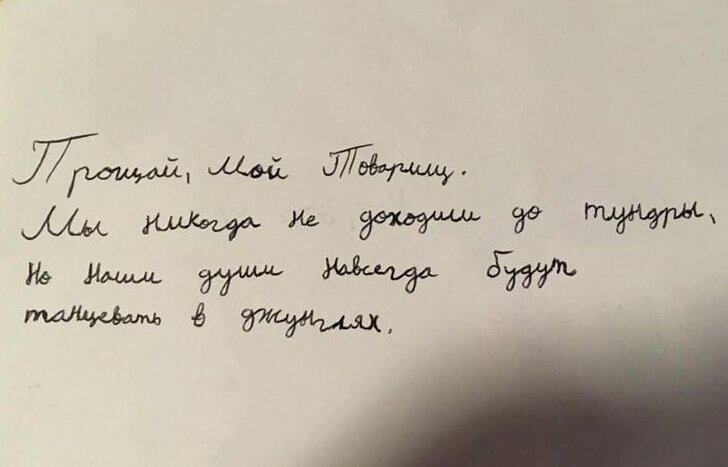 Прощай, Мой Товарищ.
Мы никогда не доходили до тундры,
Но Наши души Навсегда будут
танцевать в джунглях.